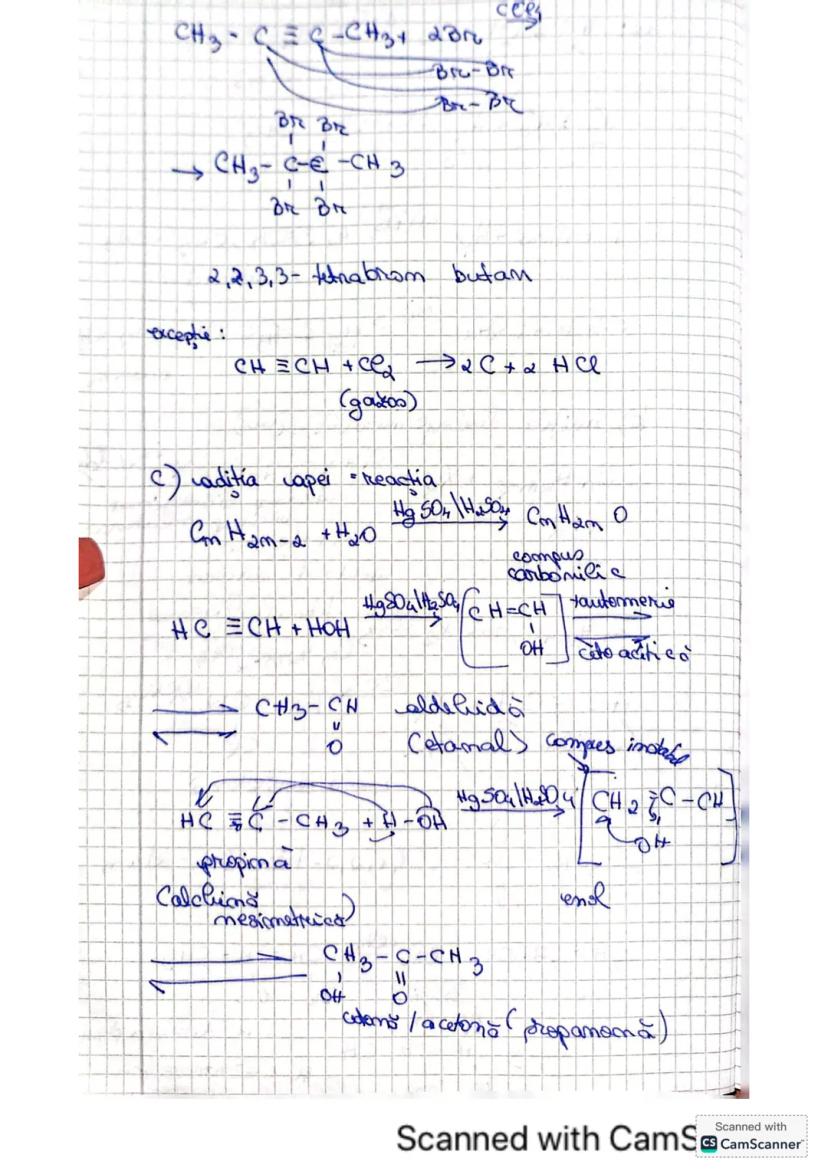 CCl4
CH3 - C ≡ C - CH3 + 2Br2 →
Br - Br
Br - Br
Br Br
→ CH3 - C - C - CH3
Br Br
2,2,3,3 - tetrabrom butan
excepție :
CH ≡ CH + Cl2 → 2C + 2 HCl
(gazos)
c) adiția apei = reacția
CnH2n-2 + H2O HgSO4\H2SO4 → CnH2nO
compus
carbonilic
HC ≡ CH + HOH HgSO4\H2SO4 → [CH = CH] tautomerie
OH
⇌ CH3 - CH aldehidă
O (etanal) compus instabil
HC ≡ C - CH3 + H - OH HgSO4\H2SO4 → [CH2 = C - CH]
OH
propină
(alchină enol
nesimetrică)
⇌ CH3 - C - CH3
OH O
cetonă / acetonă (propanonă)
Scanned with CamS
Scanned with
CS CamScanner